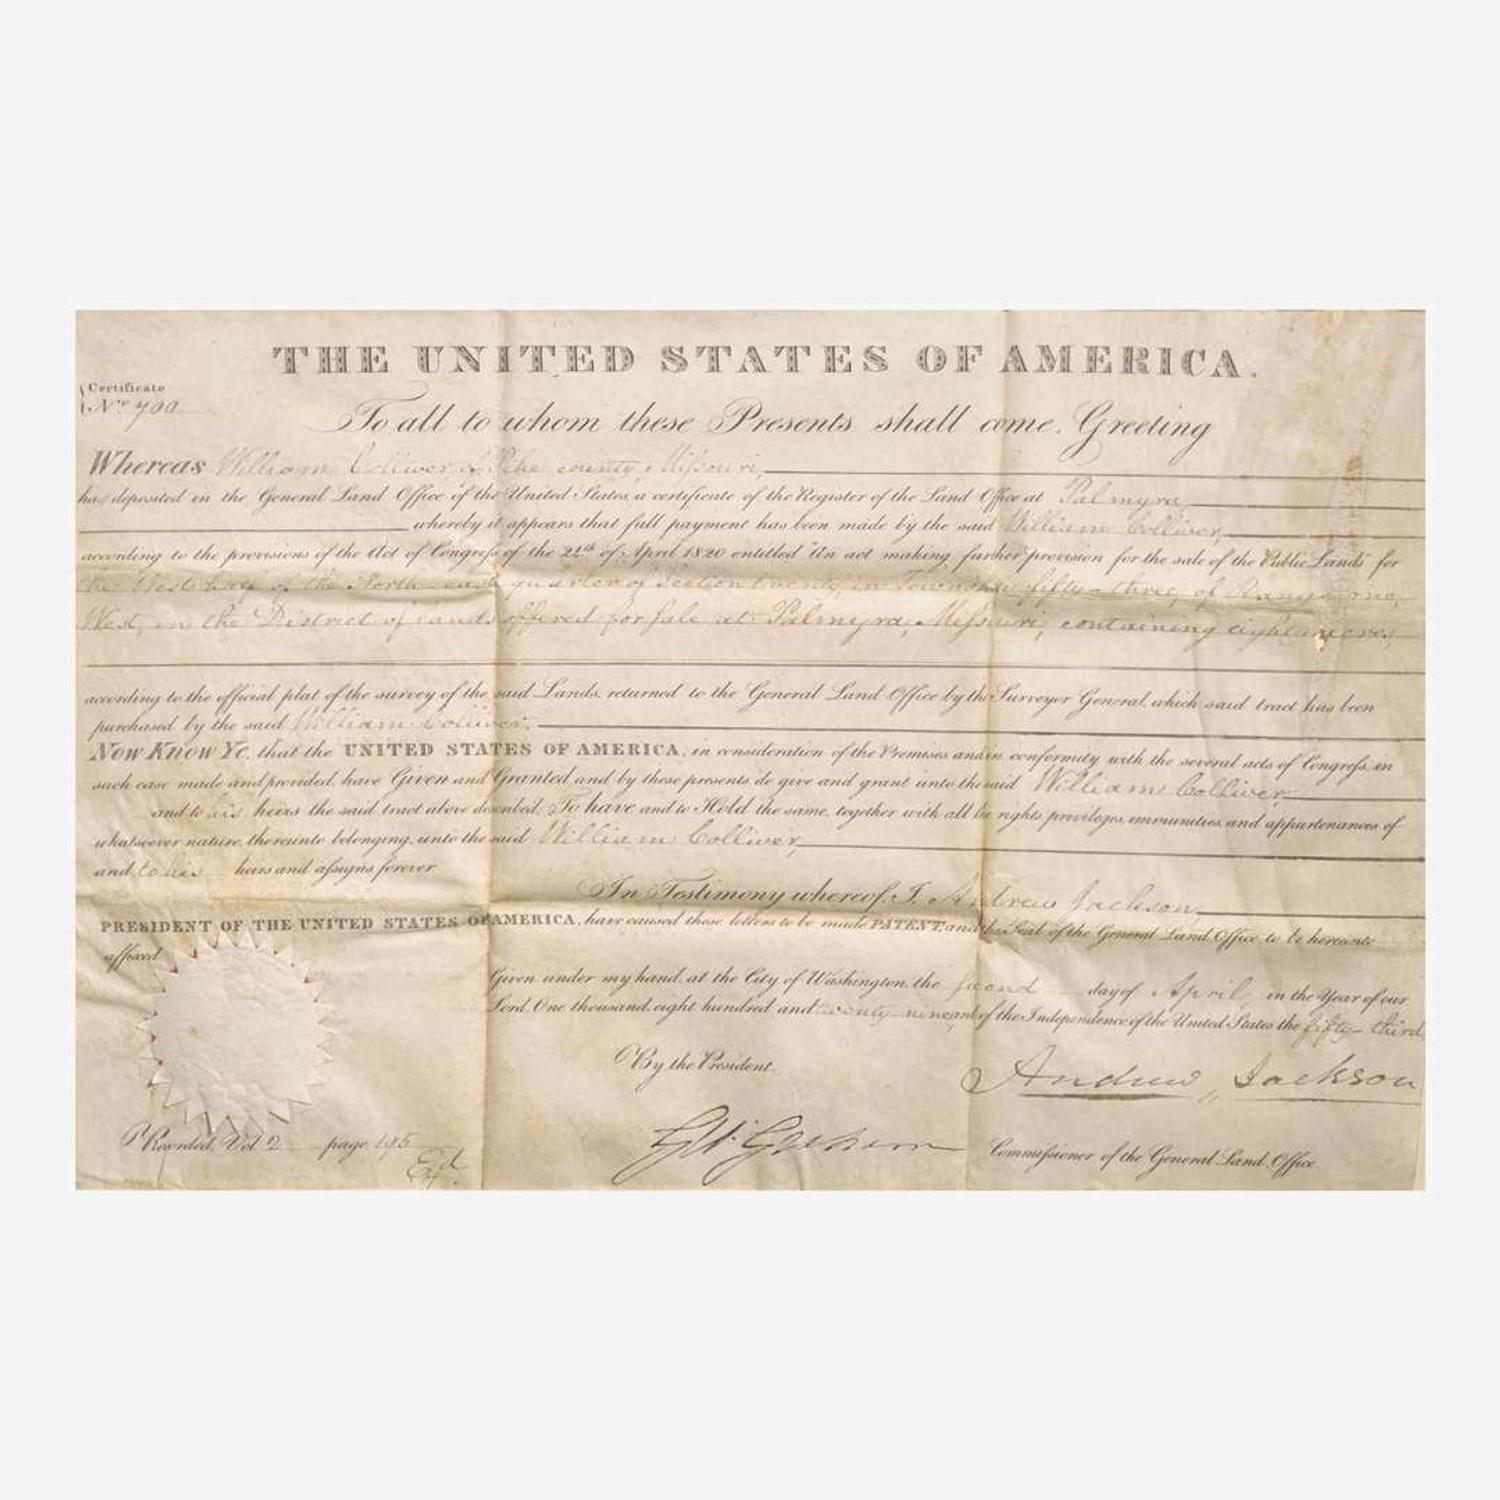 THE UNITED STATES OF AMERICA.
Certificate
No. 700
To all to whom these Presents shall come, Greeting
Whereas William Colliver, of Pike county, Missouri,
has deposited in the General Land Office of the United States, a certificate of the Register of the Land Office at Palmyra
whereby it appears that full payment has been made by the said William Colliver,
according to the provisions of the Act of Congress of the 24th of April 1820 entitled "An act making further provision for the sale of the Public Lands" for
the West half of the North east quarter of Section twenty, in Township fifty-three, of Range one,
West, in the District of Lands offered for sale at Palmyra, Missouri, containing eighty acres,
according to the official plat of the survey of the said Lands, returned to the General Land Office by the Surveyor General, which said tract has been
purchased by the said William Colliver:
Now Know Ye, that the UNITED STATES OF AMERICA, in consideration of the Premises, and in conformity with the several acts of Congress, in
such case made and provided, have Given and Granted, and by these presents do give and grant unto the said William Colliver,
and to his heirs the said tract above described: To have and to Hold the same, together with all the rights, privileges, immunities, and appurtenances of
whatsoever nature, thereunto belonging, unto the said William Colliver,
and to his heirs and assigns forever.
In Testimony whereof, I, Andrew Jackson
PRESIDENT OF THE UNITED STATES OF AMERICA, have caused these letters to be made PATENT, and the Seal of the General Land Office to be hereunto
affixed
Given under my hand, at the City of Washington, the second day of April, in the Year of our
Lord, One thousand, eight hundred and twenty-nine, and of the Independence of the United States the fifty-third
By the President,
Andrew Jackson
Recorded, Vol 2 page 195
Ed
G.W. Graham Commissioner of the General Land Office